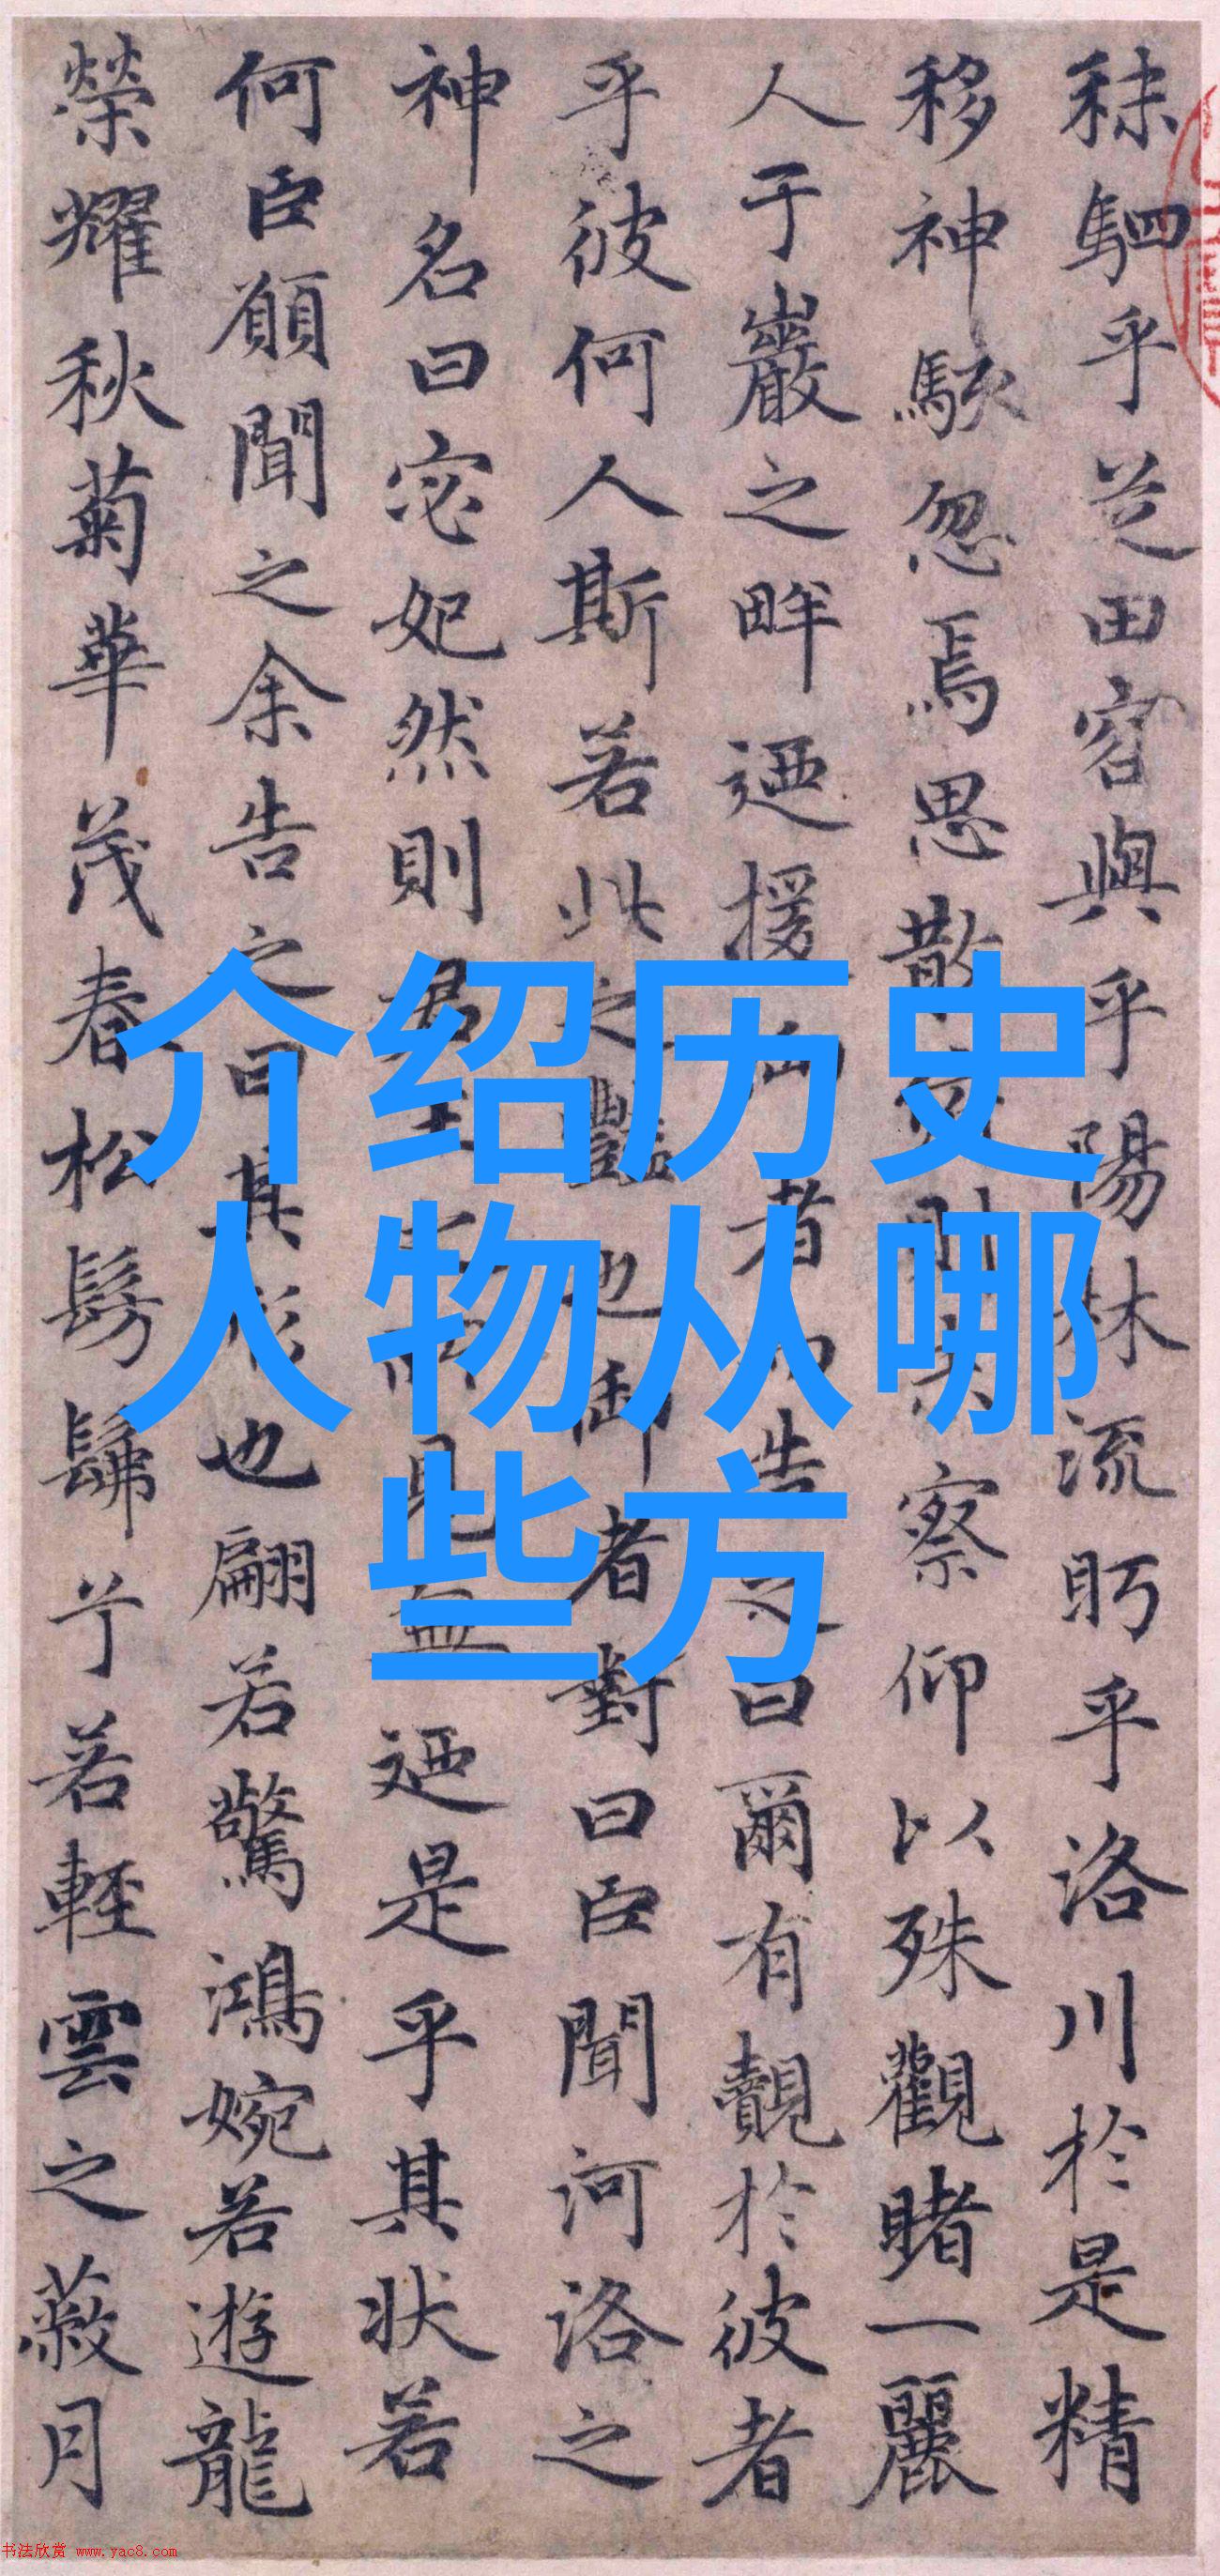 秣駟乎芝田容與乎陽林流眄乎洛川於是精
移神駭忽焉思散俯則未察仰以殊觀睹一麗
人于巖之畔迺援御者而告之曰爾有覿於彼者
乎彼何人斯若此之豔也御者對曰臣聞河洛之
神名曰宓妃然則君王之所見無迺是乎其狀若
何臣願聞之余告之曰其形也翩若驚鴻婉若遊龍
榮耀秋菊華茂春松髣髴兮若輕雲之蔽月
介绍历史
人物从哪
些方
书法欣赏 www.yac8.com